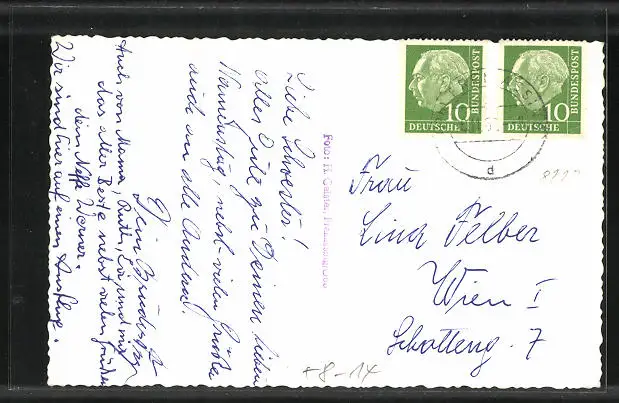 Liebe Schwester!
Alles Gute zu Deinem lieben
Namenstag, nebst vielen Grüßen
auch an alle Andern.
Dein Bruder
Auch von Mama, Ruth, und mir
das aller Beste nebst vielen Grüßen
dein Neffe Werner.
Wir sind hier auf einem Ausflug.
Foto: H.
10
DEUTSCHE
BUNDESPOST
10
DEUTSCHE
BUNDESPOST
Frau
Lina Felber
Wien I
Schotteng. 7
+8-14